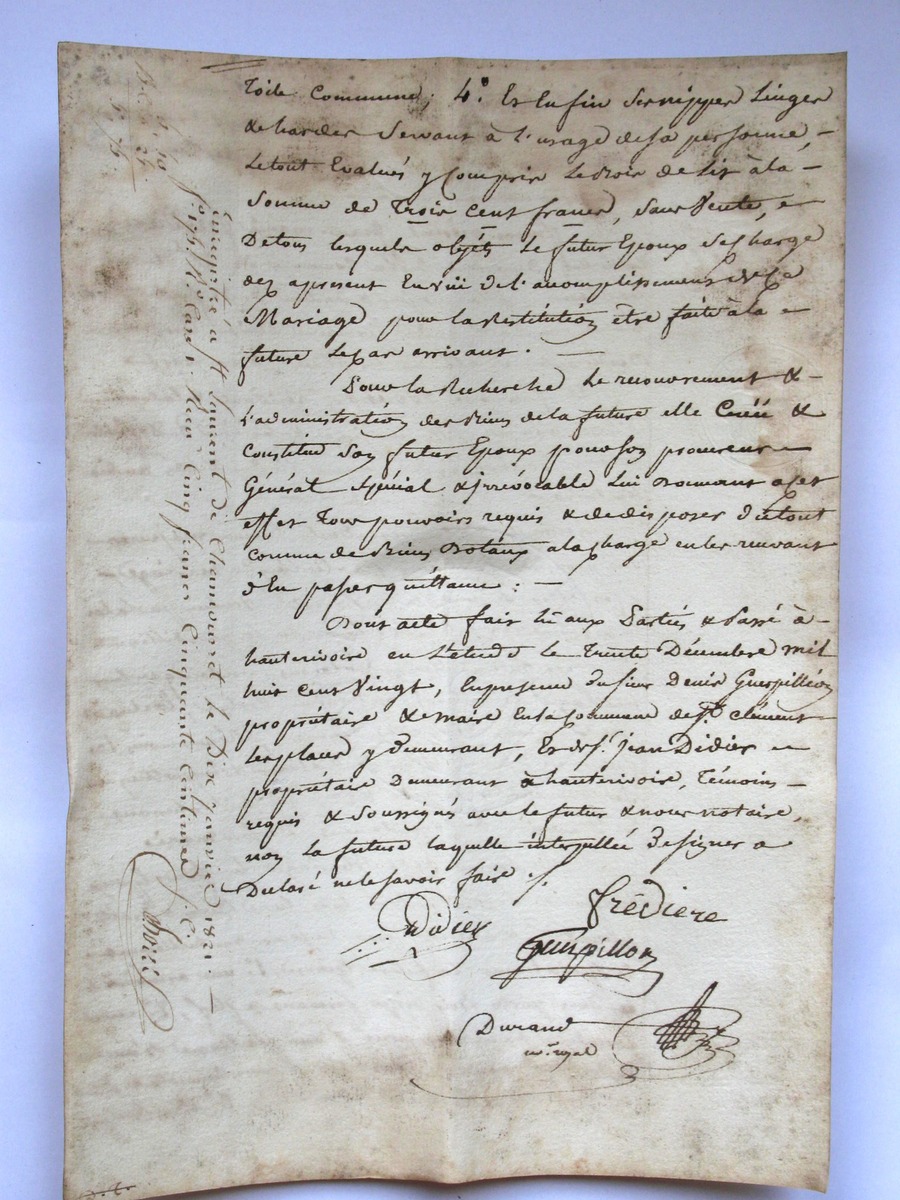 toile Commune; 4.° Et Enfin ses nippes Linges
& hardes Servant à L'usage de sa personne, –
Le tout Evalués y Compris Le bois de Lit à la –
Somme de Trois Cent francs, sans Vente, –
De tous lesquels objéts Le futur Epoux se charge
dez apresent En vüe de L'accomplissement de Ce
Mariage pour la Restitution, être faite à la –
future Le Cas arrivant. –
Pour la Recherche Le recouvrement & –
L'administration des Biens de la future elle Créé &
Constitue Son futur Epoux pour son procureur –
Général Spécial & jrrévocable Lui Donnant a cet
effet Tous pouvoirs requis & de disposer du tout
comme de Biens Dotaux a la charge en les recevant
d'En passer quittance : –
Dont acte fait lû aux Parties & Passé à –
hauterivoire en L'etude le Trente Décembre mil
huit Cent Vingt, En presence du sieur Denis Guerpillon
propriétaire & maire En la Commune de S.t Clément
les places y Demeurant, Et de S.r jean Didier –
propriétaire Demeurant à hauterivoire, Témoins –
requis & Soussignés avec le futur & nous notaire,
non La future laquelle interpellée De signer a
Declaré ne le savoir faire ./.
Frédiere
Didier
Guerpillon
Durand
n.re royal
Enregistré à S.t Laurent de Chamousset le Dix janvier 1821. –
f.° 175. R.° Case 1. Reçu Cinq francs Cinquante Centimes